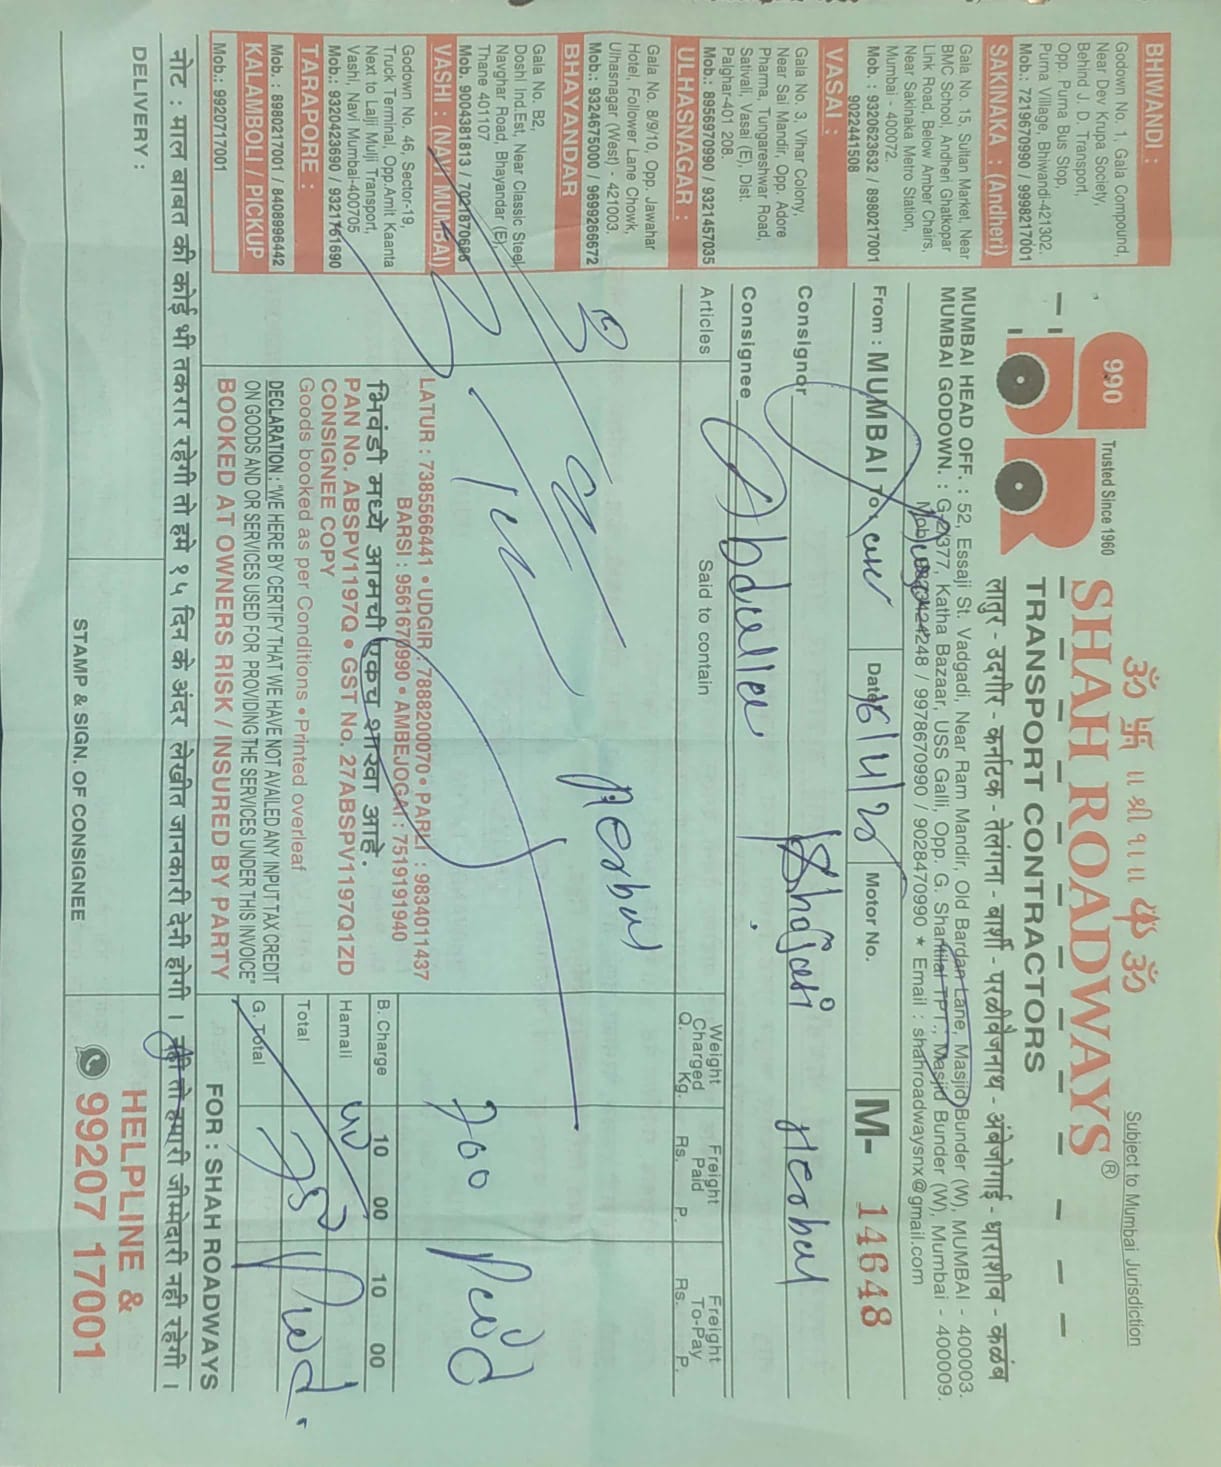 ॐ 卐 ॥ श्री १॥ ॐ
Subject to Mumbai Jurisdiction
990
Trusted Since 1960
SHAH ROADWAYS®
TRANSPORT CONTRACTORS
लातुर - उदगीर - कर्नाटक - तेलंगना - बार्शी - परळीवैजनाथ - अंबेजोगाई - धाराशीव - कळंब
MUMBAI HEAD OFF. : 52, Essaji St. Vadgadi, Near Ram Mandir, Old Bardan Lane, Masjid Bunder (W), MUMBAI - 400003.
MUMBAI GODOWN. : G-2/377, Katha Bazaar, USS Galli, Opp. G. Shantilal TPT., Masjid Bunder (W), Mumbai - 400009.
9978670990 / 9028470990 ★ Email : shahroadwaysnx@gmail.com
From : MUMBAI To.
Date
Motor No.
M- 14648
Consignor
Herbal
Consignee Abdullaa
Articles
Said to contain
Weight Charged Q. Kg.
Freight Paid Rs. P.
Freight To-Pay Rs. P.
Herbal
200 Paid
LATUR : 7385566441 • UDGIR : 7888200070 • PARLI : 9834011437
BARSI : 9561670990 • AMBEJOGAI : 7519191940
भिवंडी मध्ये आमची एकच शाखा आहे.
PAN No. ABSPV1197Q • GST No. 27ABSPV1197Q1ZD
CONSIGNEE COPY
Goods booked as per Conditions • Printed overleaf
DECLARATION : "WE HERE BY CERTIFY THAT WE HAVE NOT AVAILED ANY INPUT TAX CREDIT
ON GOODS AND OR SERVICES USED FOR PROVIDING THE SERVICES UNDER THIS INVOICE"
BOOKED AT OWNERS RISK / INSURED BY PARTY
B. Charge 10 00 10 00
Hamali
Total
G. Total
FOR : SHAH ROADWAYS
BHIWANDI :
Godown No. 1, Gala Compound,
Near Dev Krupa Society,
Behind J. D. Transport,
Opp. Purna Bus Stop,
Purna Village, Bhiwandi-421302.
Mob.: 7219670990 / 9998217001
SAKINAKA : (Andheri)
Gala No. 15, Sultan Market, Near
BMC School, Andheri Ghatkopar
Link Road, Below Amber Chairs,
Near Sakinaka Metro Station,
Mumbai - 400072.
Mob. : 9320623632 / 8980217001
9022441508
VASAI :
Gala No. 3, Vihar Colony,
Near Sai Mandir, Opp. Adore
Pharma, Tungareshwar Road,
Sativali, Vasai (E), Dist.
Palghar-401 208.
Mob.: 8956970990 / 9321457035
ULHASNAGAR :
Gala No. 8/9/10, Opp. Jawahar
Hotel, Follower Lane Chowk,
Ulhasnagar (West) - 421003.
Mob.: 9324675000 / 9699266672
BHAYANDAR
Gala No. B2,
Doshi Ind.Est, Near Classic Steel,
Navghar Road, Bhayandar (E),
Thane 401107
Mob. 9004381813 / 7021870686
VASHI : (NAVI MUMBAI)
Godown No. 46, Sector-19,
Truck Terminal, Opp.Amit Kaanta
Next to Lalji Mulji Transport,
Vashi, Navi Mumbai-400705
Mob.: 9320423690 / 9321761690
TARAPORE :
Mob. : 8980217001 / 8408996442
KALAMBOLI / PICKUP
Mob.: 9920717001
नोट : माल बाबत की कोई भी तकरार रहेगी तो हमे १५ दिन के अंदर लेखीत जानकारी देनी होगी । नही तो हमारी जीम्मेदारी नही रहेगी ।
DELIVERY :
STAMP & SIGN. OF CONSIGNEE
HELPLINE &
99207 17001